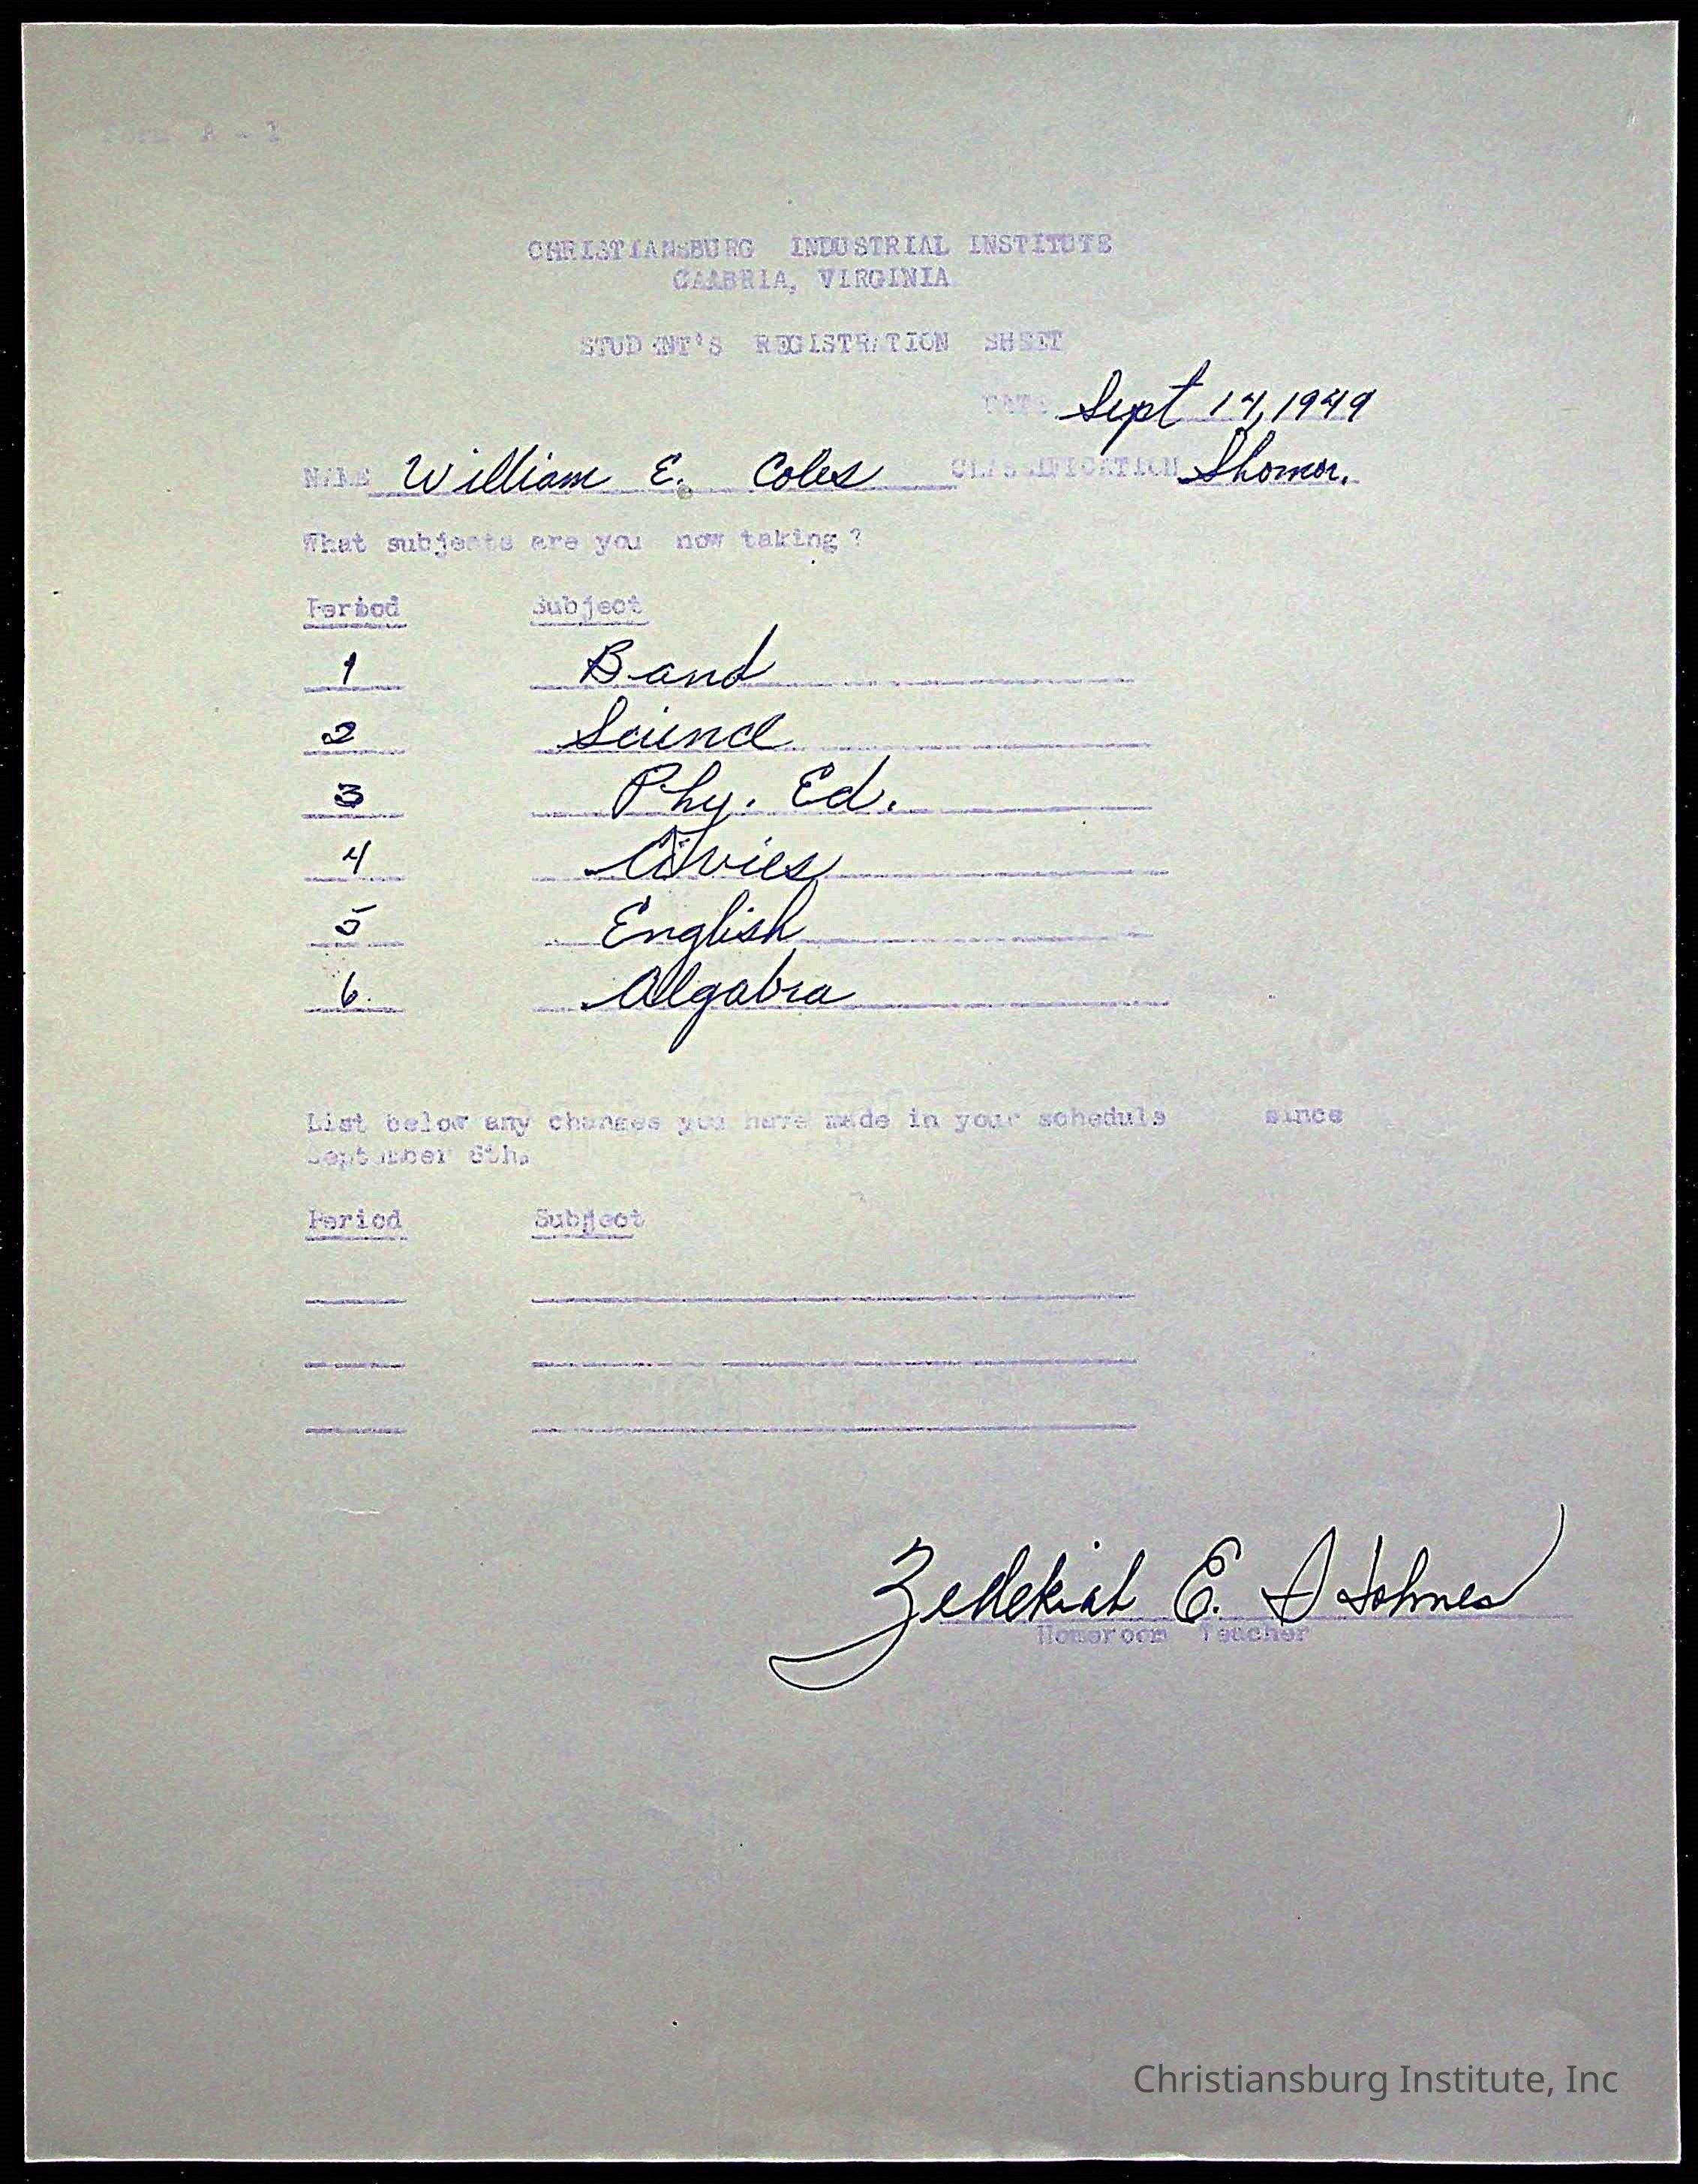 Form A - 1
CHRISTIANSBURG INDUSTRIAL INSTITUTE
CAMBRIA, VIRGINIA
STUDENT'S REGISTRATION SHEET
DATE Sept 14, 1949
NAME William E. Coles CLASSIFICATION Shomor.
What subjects are you now taking?
Period Subject
1 Band
2 Science
3 Phy. Ed.
4 Civics
5 English
6. Algabra
List below any changes you have made in your schedule since
September 6th.
Period Subject
Zedekiah E. Holmes
Homeroom Teacher
Christiansburg Institute, Inc